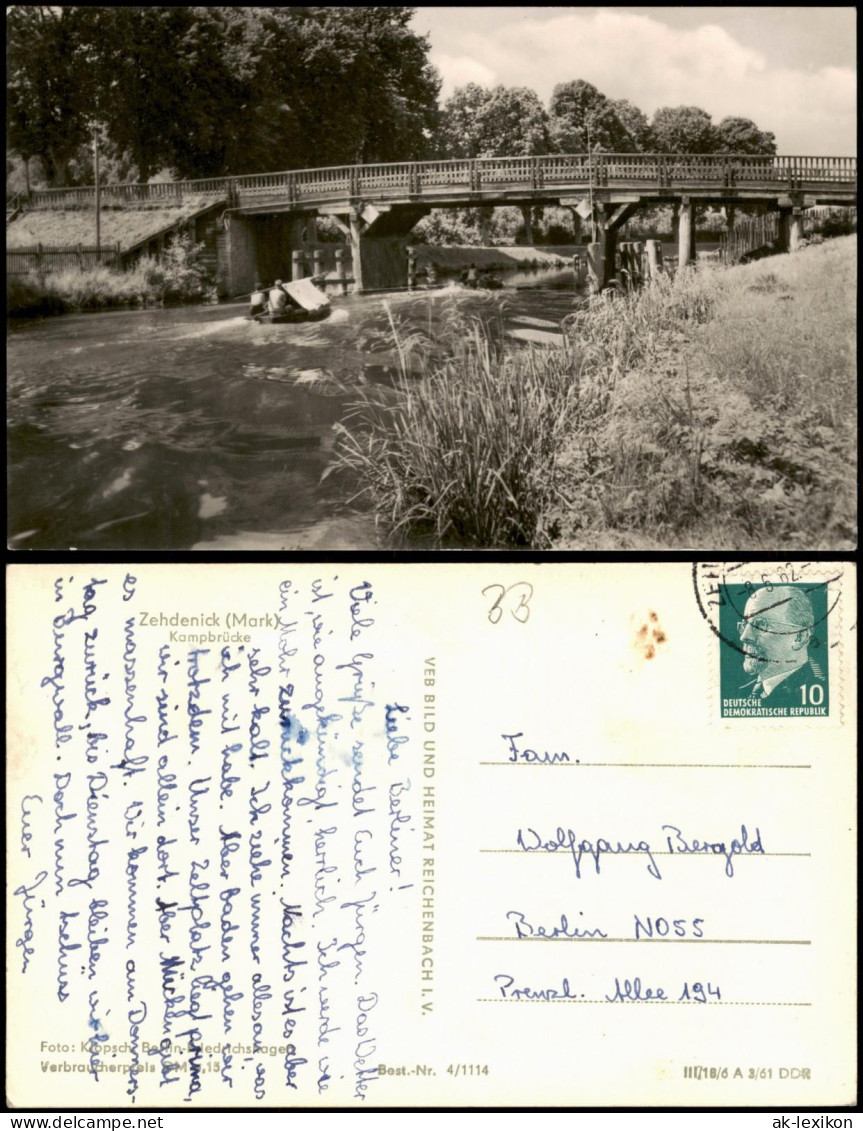 Zehdenick (Mark)
Kampbrücke
Liebe Berliner!
Viele Grüße sendet Euch Jürgen. Das Wetter
ist, wie angekündigt, herrlich. Ich werde wie
ein Mohr zurückkommen. Nachts ist es aber
sehr kalt. Ich ziehe immer alles an, was
ich mit habe. Aber baden gehen wir
trotzdem. Unser Zeltplatz liegt prima,
wir sind allein dort. Aber Mücken gibt
es massenhaft. Wir kommen am Donners-
tag zurück, bis Dienstag bleiben wir hier
in Burgwall. Doch nun tschüss
Euer Jürgen
Foto: Klopsch, Berlin-Friedrichshagen
Verbraucherpreis DM 0,15
VEB BILD UND HEIMAT REICHENBACH I. V.
Best.-Nr. 4/1114
33
DEUTSCHE
DEMOKRATISCHE REPUBLIK
10
Fam.
Wolfgang Bergold
Berlin NO55
Prenzl. Allee 194
III/18/6 A 3/61 DDR
ak-lexikon